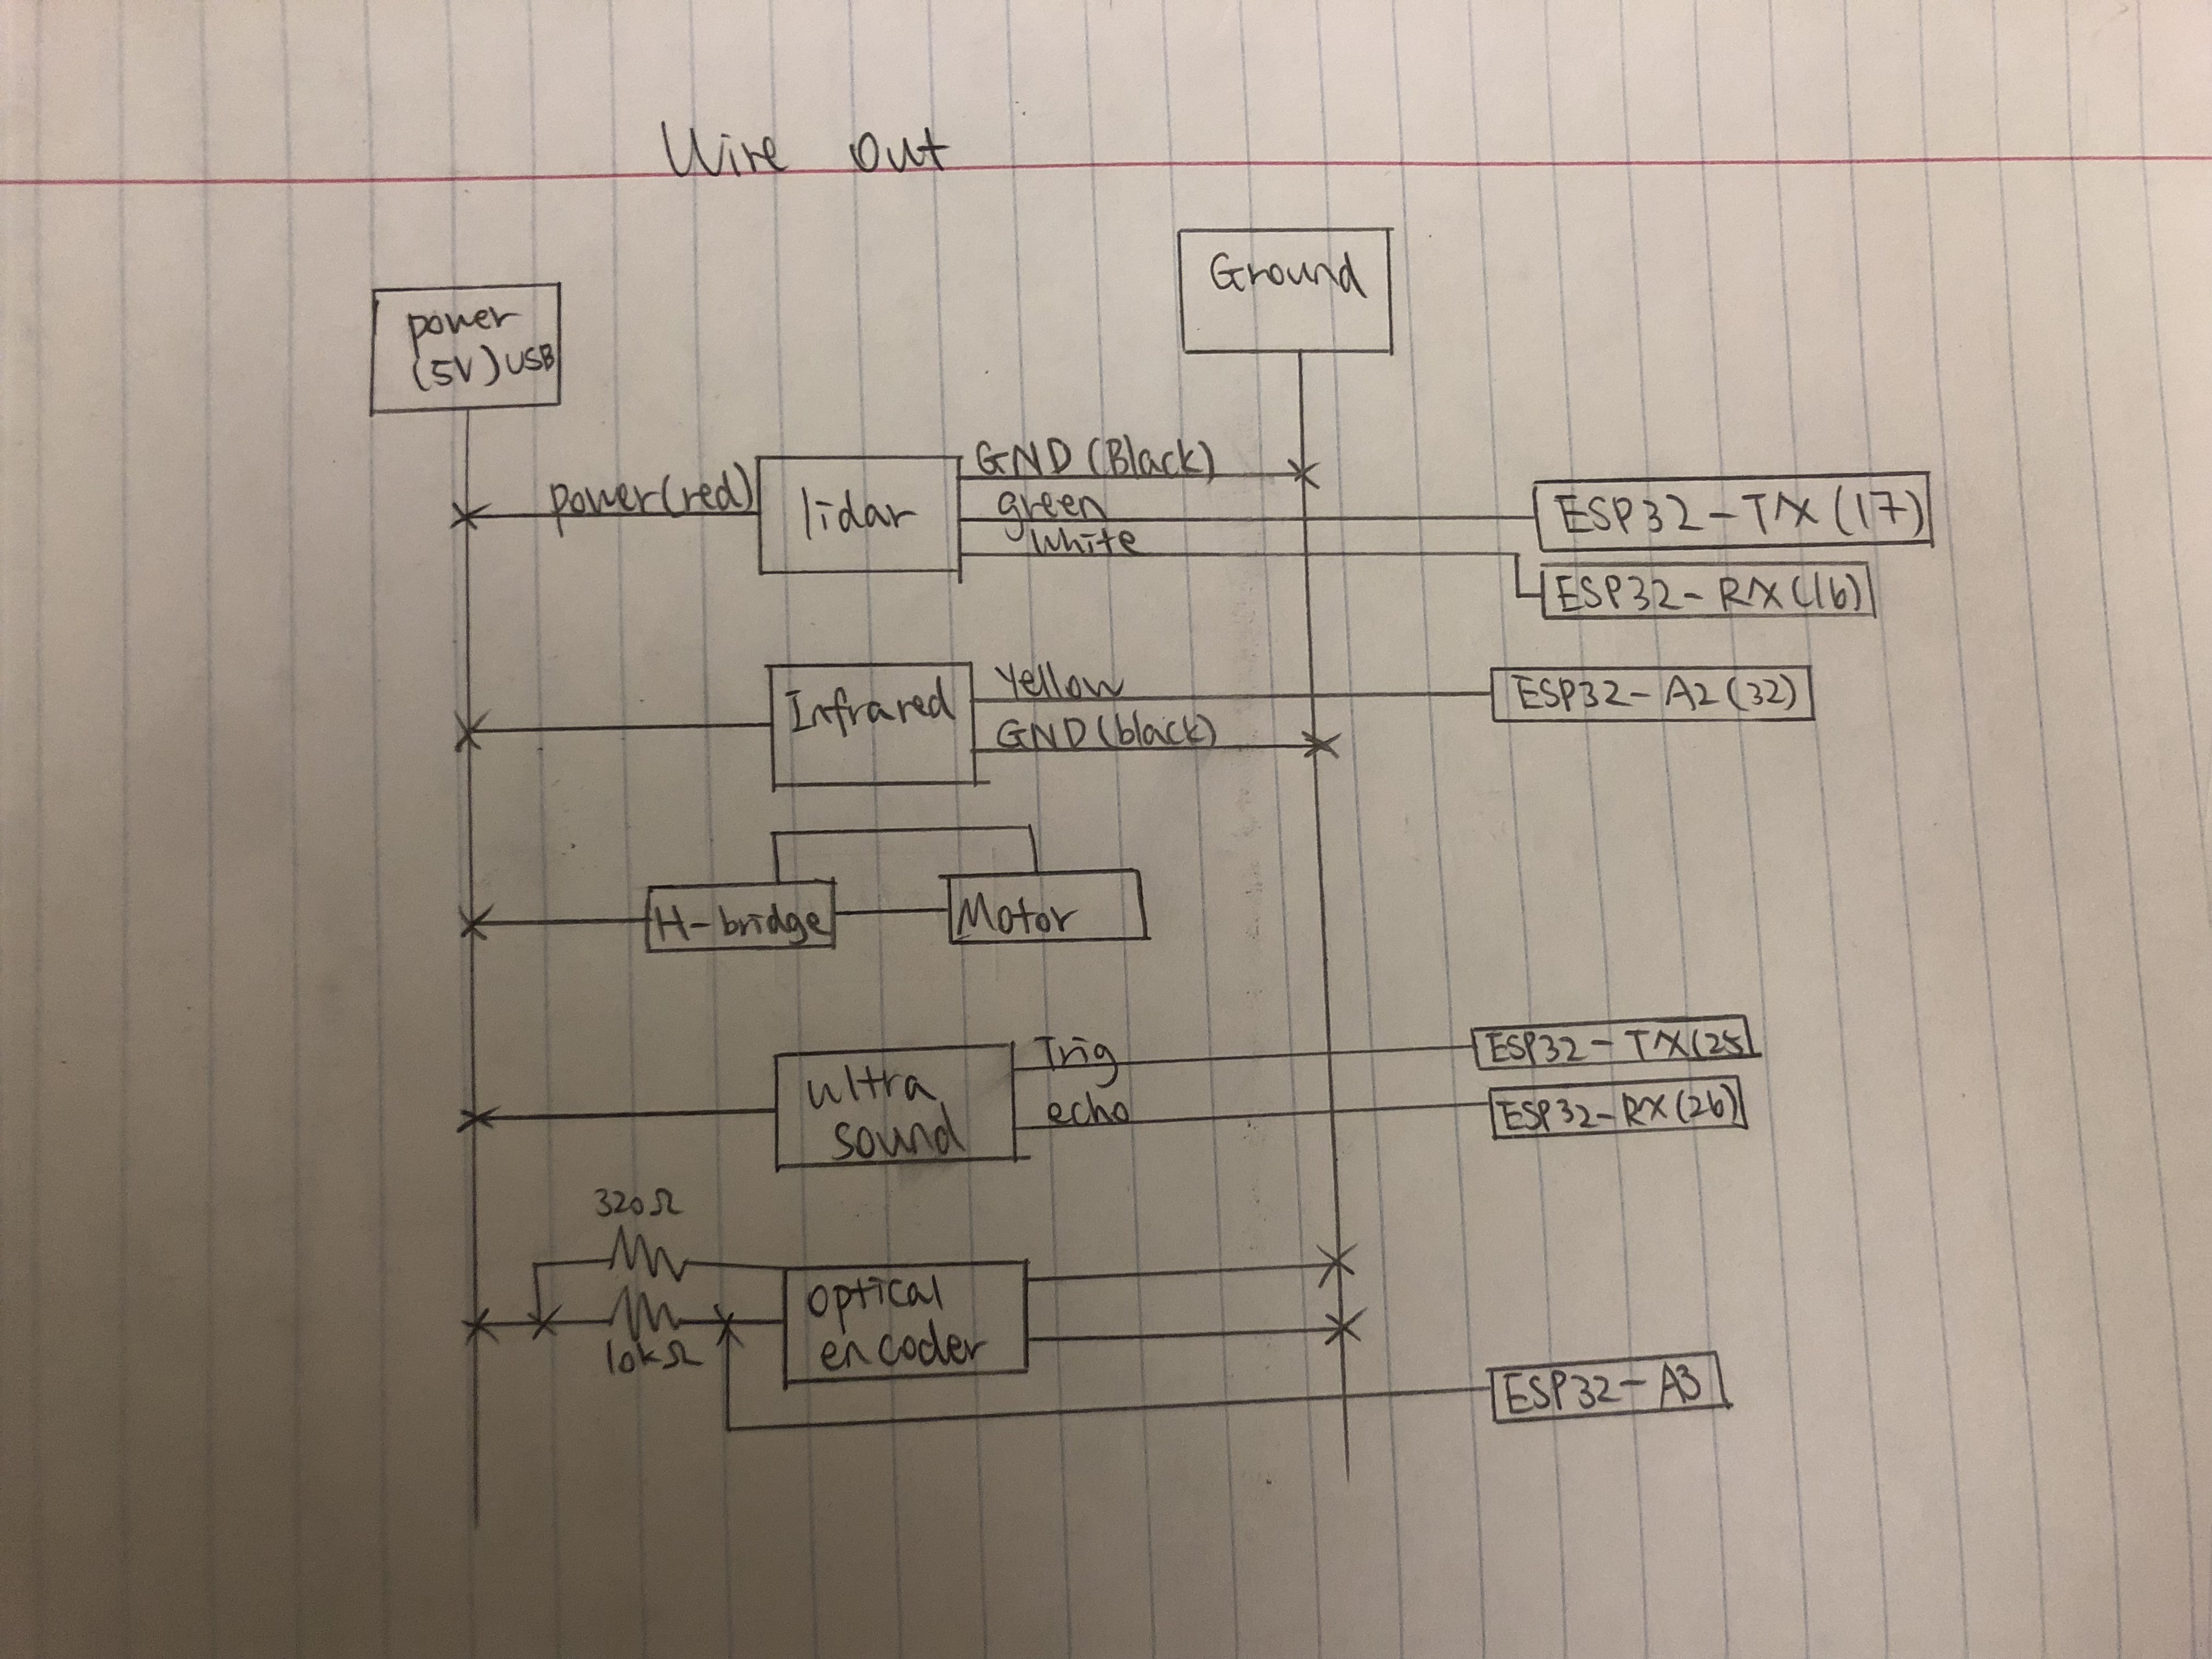 Wire Out
Ground
power
(5V) USB
power(red)
lidar
GND (Black)
green
white
ESP32-TX(17)
ESP32-RX(16)
Infrared
Yellow
GND (black)
ESP32-A2(32)
H-bridge
Motor
ultra
sound
Trig
echo
ESP32-TX(25
ESP32-RX(26)
320Ω
10kΩ
optical
encoder
ESP32-A3